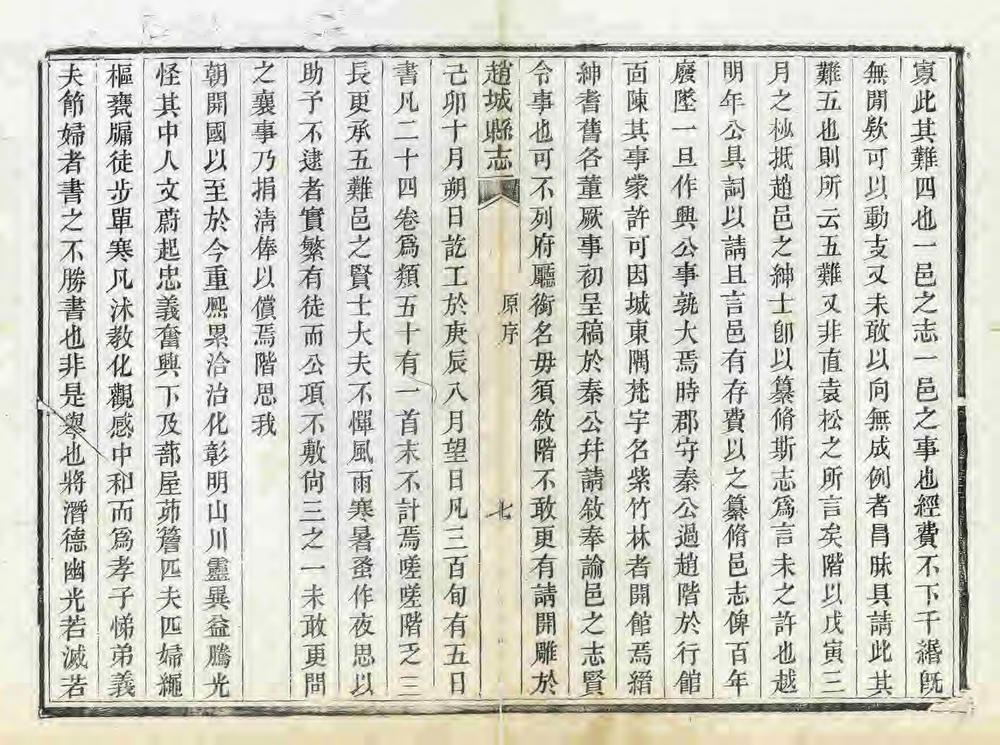 寡此其難四也一邑之志一邑之事也經費不下千緡旣
無閒欵可以動支又未敢以向無成例者昌昧具請此其
難五也則所云五難又非直袁松之所言矣階以戊寅三
月之杪抵趙邑之紳士卽以纂脩斯志爲言未之許也越
明年公具詞以請且言邑有存費以之纂脩邑志俾百年
廢墜一旦作興公事孰大焉時郡守秦公過趙階於行館
面陳其事蒙許可因城東隅梵宇名紫竹林者開館焉縉
紳耆舊各董厥事初呈稿於秦公幷請敘奉諭邑之志賢
令事也可不列府廳銜名毋須敘階不敢更有請開雕於
趙城縣志 原序 七
己卯十月朔日訖工於庚辰八月望日凡三百旬有五日
書凡二十四卷爲類五十有一首末不計焉嗟嗟階乏三
長更承五難邑之賢士大夫不憚風雨寒暑蚤作夜思以
助予不逮者實繁有徒而公項不敷尙三之一未敢更問
之襄事乃捐淸俸以償焉階思我
朝開國以至於今重熙累洽治化彰明山川靈異益騰光
怪其中人文蔚起忠義奮興下及蔀屋茆簷匹夫匹婦繩
樞甕牖徒步單寒凡沐教化觀感中和而爲孝子悌弟義
夫節婦者書之不勝書也非是舉也將潛德幽光若滅若